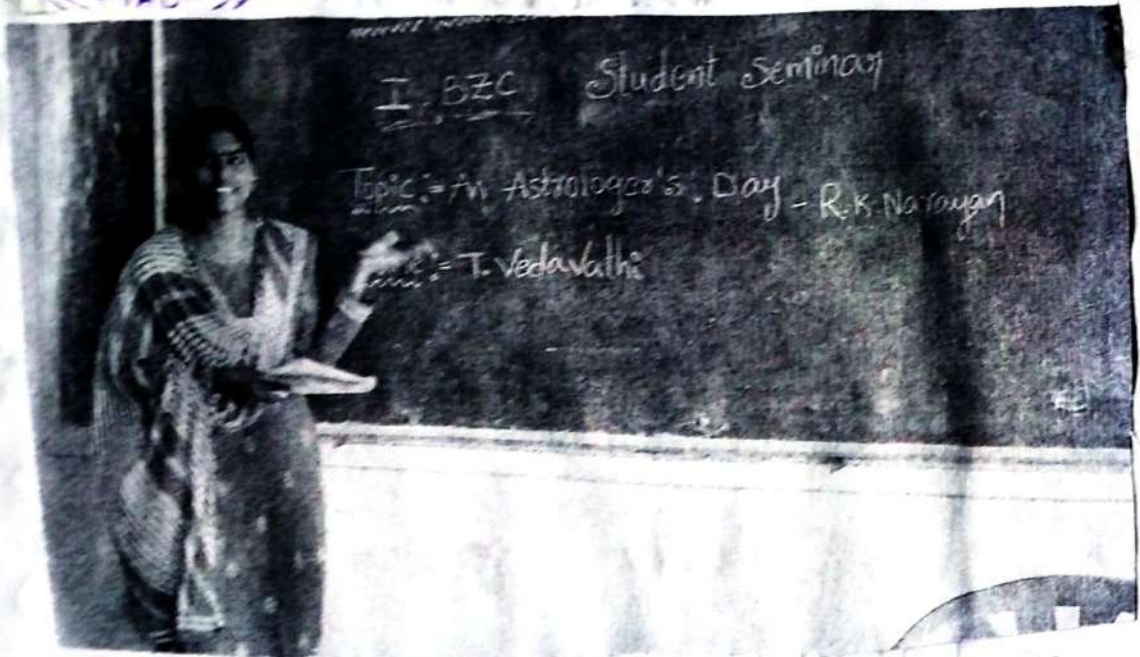 I BZC Student Seminar
Topic:- An Astrologer's Day - R.K. Narayan
:- T. Vedavathi